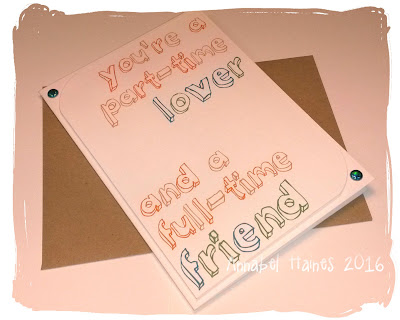 you're a
part-time
lover
and a
full-time
friend
Annabel Haines 2016